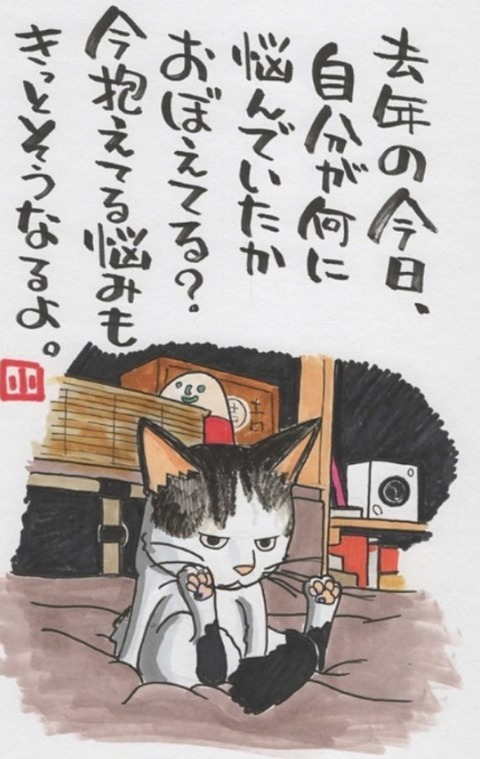 去年の今日、
自分が何に
悩んでいたか
おぼえてる?
今抱えてる悩みも
きっとそうなるよ。
小
吉